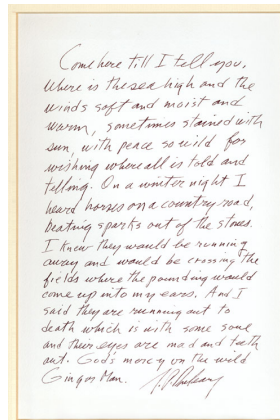 Come here till I tell you,
Where is the sea high and the
winds soft and moist and
warm, sometimes stained with
sun, with peace so wild for
wishing where all is told and
telling. On a winter night I
heard horses on a country road,
beating sparks out of the stones.
I knew they would be running
away and would be crossing the
fields where the pounding would
come up into my ears. And I
said they are running out to
death which is with some soul
and their eyes are mad and teeth
out. God's mercy on the wild
Ginger Man. J.P. Donleavy